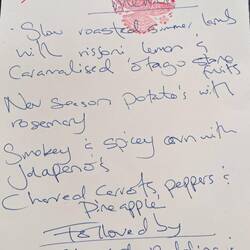 · Slow roasted summer lamb
with rissoni lemon &
Caramalised 'otago stone
fruits
New season potato's with
rosemary
Smokey & spicey corn with
Jalapeno's
Charred Carrots, peppers &
Pineapple
Followed by